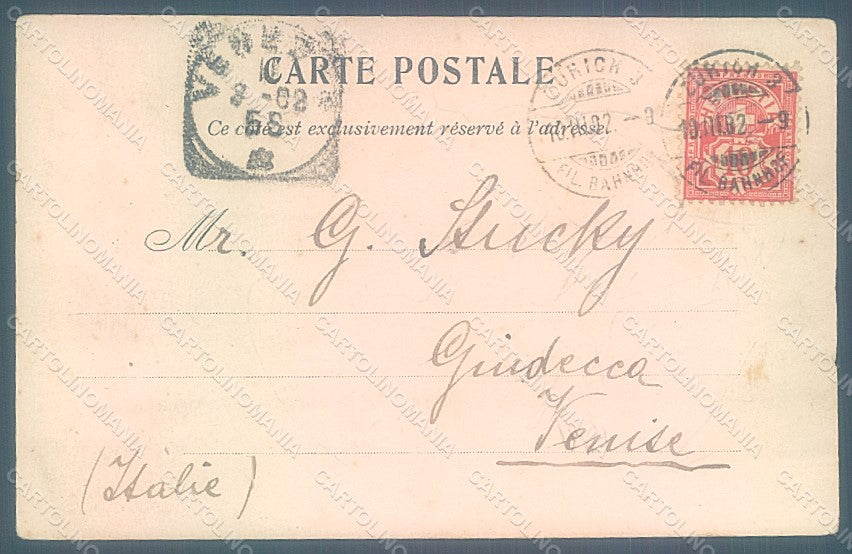 CARTE POSTALE
Ce côté est exclusivement réservé à l'adresse.
ZÜRICH 3
10.III.02. – 9
FIL. BAHNHOF
ZÜRICH 3
10.III.02. – 9
FIL. BAHNHOF
10
Mr. G. Stucky
Giudecca
Venise
(Italie)
CARTOLINOMANIA